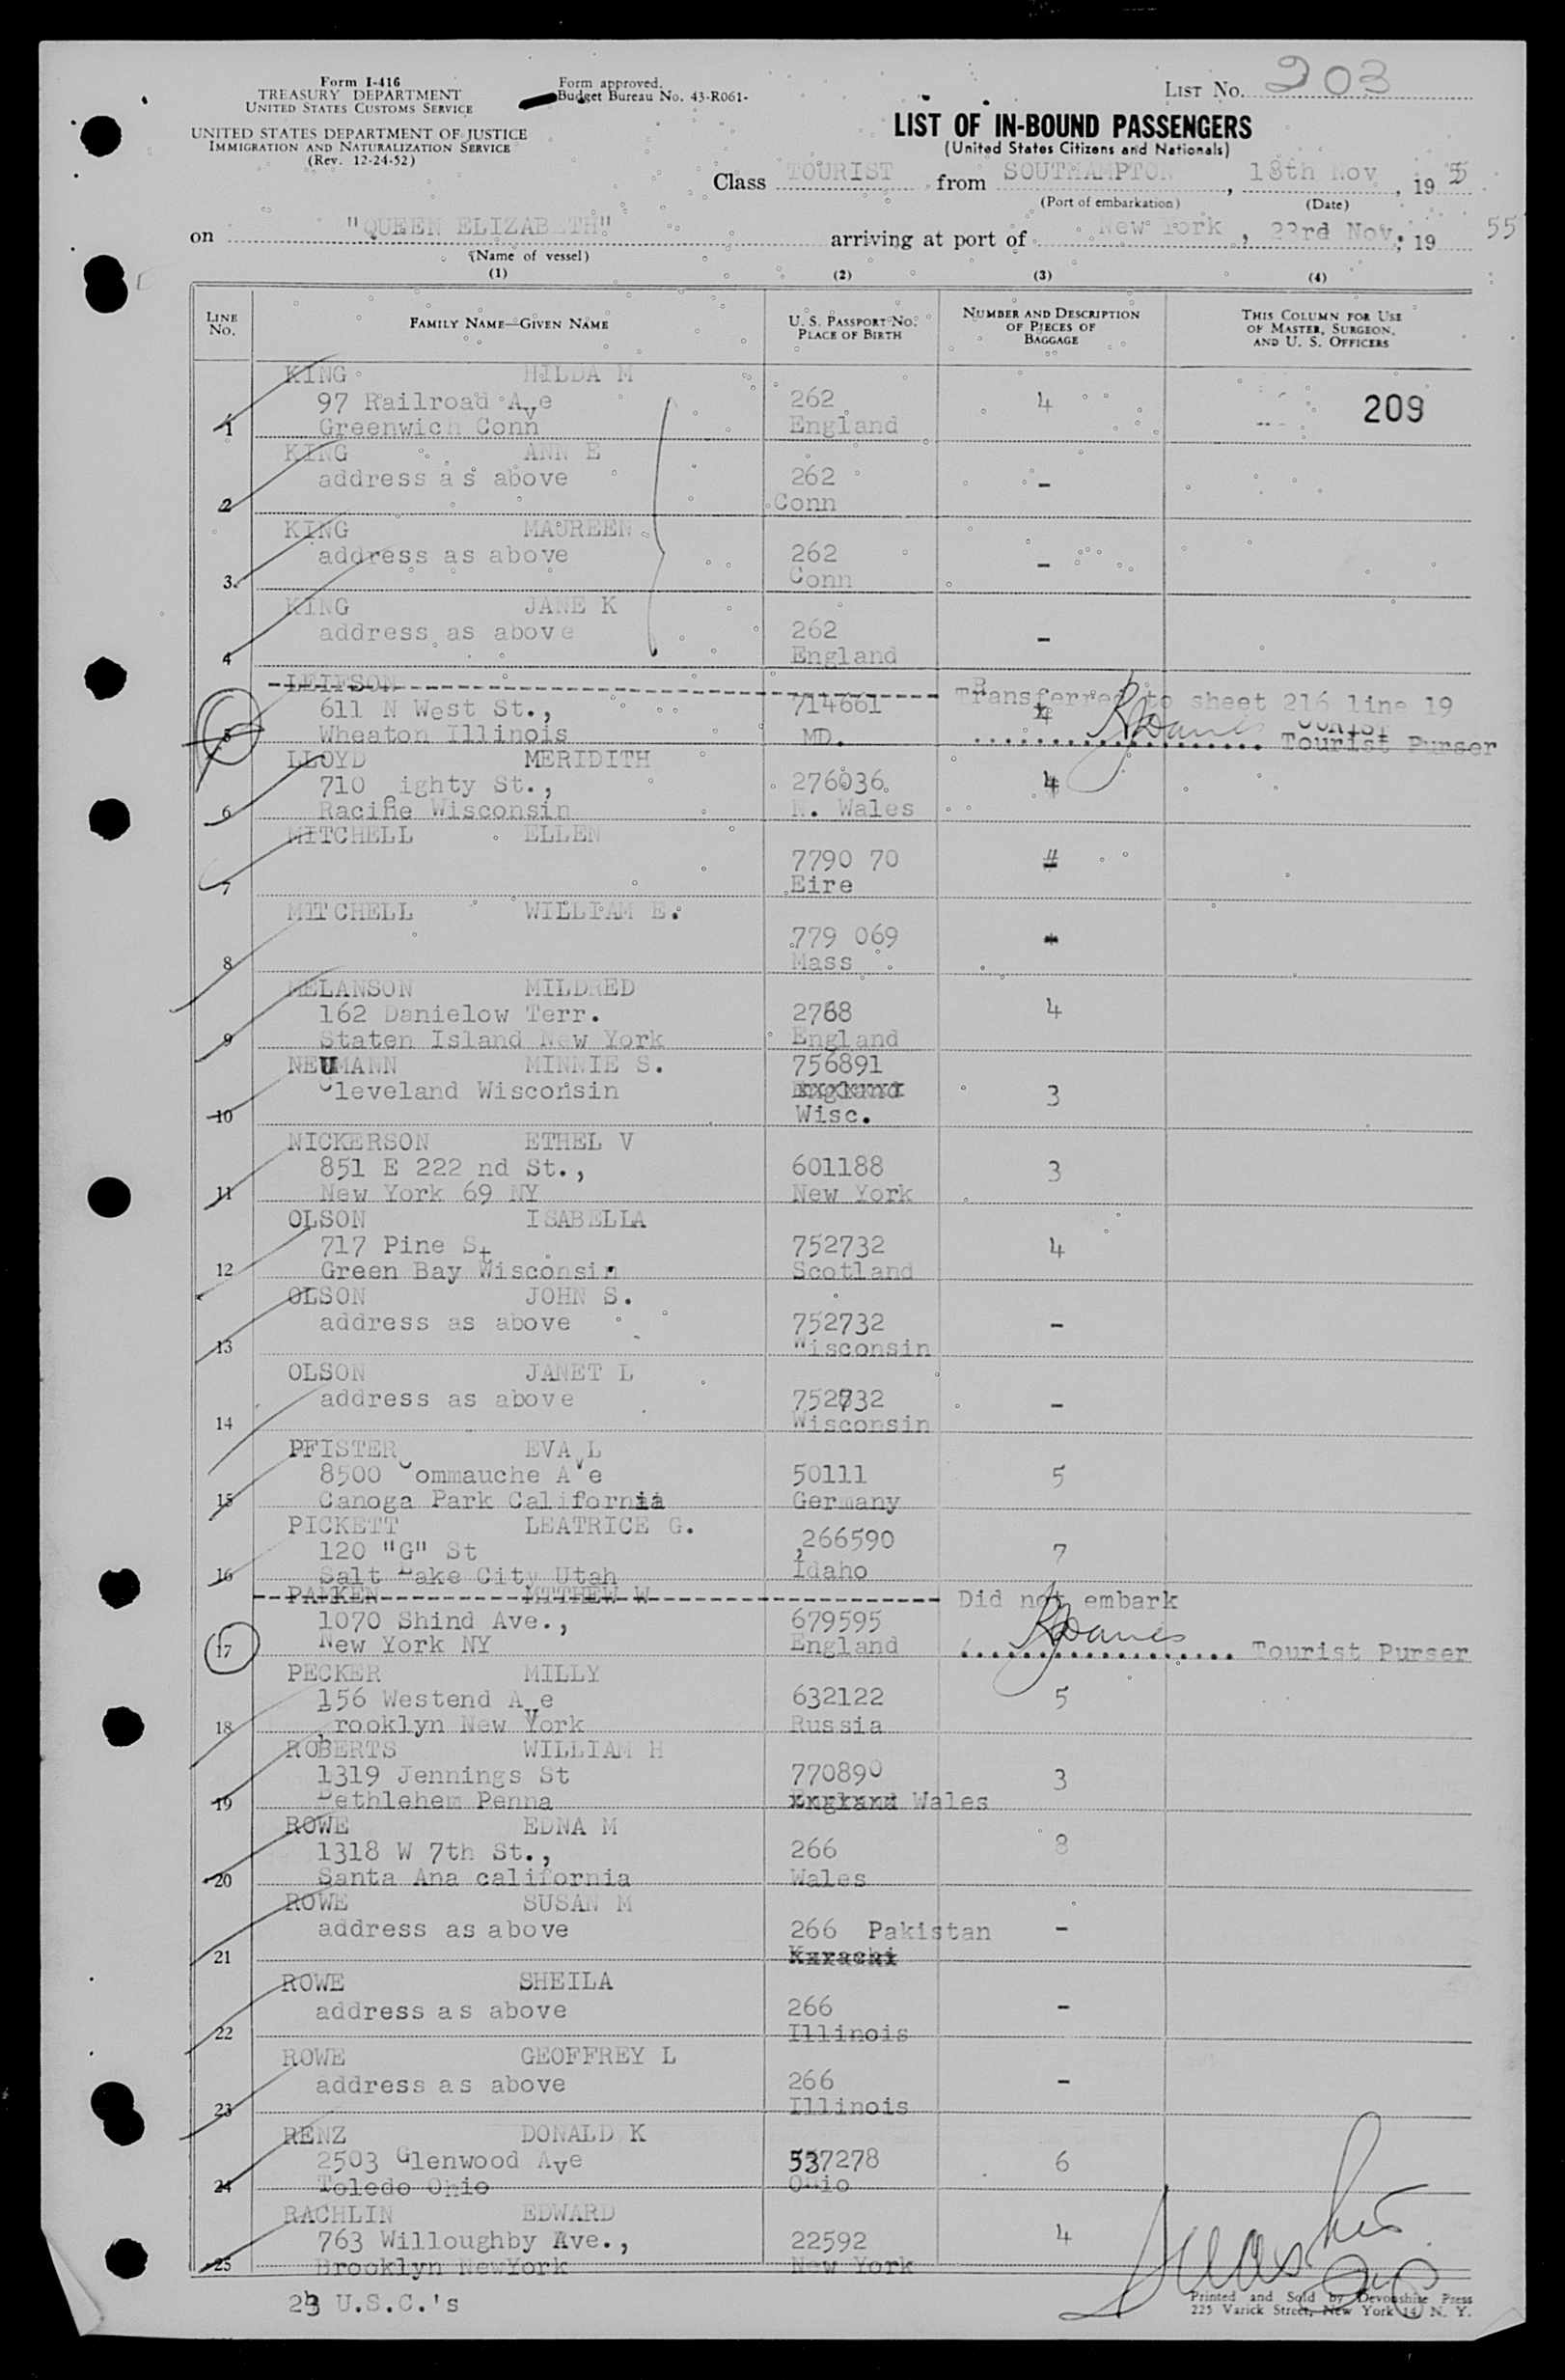 Form I-416
TREASURY DEPARTMENT
UNITED STATES CUSTOMS SERVICE
UNITED STATES DEPARTMENT OF JUSTICE
IMMIGRATION AND NATURALIZATION SERVICE
(Rev. 12-24-52)
Form approved.
Budget Bureau No. 43-R061-
LIST No. 203
LIST OF IN-BOUND PASSENGERS
(United States Citizens and Nationals)
Class TOURIST from SOUTHAMPTON, 18th Nov, 195
(Port of embarkation) (Date)
on "QUEEN ELIZABETH" arriving at port of New York, 23rd Nov, 19 55
(Name of vessel)
(1) (2) (3) (4)
LINE No. FAMILY NAME—GIVEN NAME U. S. PASSPORT NO. PLACE OF BIRTH NUMBER AND DESCRIPTION OF PIECES OF BAGGAGE THIS COLUMN FOR USE OF MASTER, SURGEON, AND U. S. OFFICERS
KING HILDA M
97 Railroad Ave 262 4 209
1 Greenwich Conn England
KING ANN E
address as above 262 -
2 Conn
KING MAUREEN
address as above 262 -
3 Conn
KING JANE K
address as above 262 -
4 England
LEIFSON TRansferred to sheet 216 line 19
611 N West St., 714661 4
5 Wheaton Illinois MD. Tourist Purser
LLOYD MERIDITH
710 ighty St., 276036 4
6 Racine Wisconsin N. Wales
MITCHELL ELLEN
7790 70
7 Eire
MITCHELL WILLIAM E.
779 069
8 Mass
MELANSON MILDRED
162 Danielow Terr. 2768 4
9 Staten Island New York England
NEUMANN MINNIE S. 756891
Cleveland Wisconsin England 3
10 Wisc.
NICKERSON ETHEL V
851 E 222 nd St., 601188 3
11 New York 69 NY New York
OLSON ISABELLA
717 Pine St 752732 4
12 Green Bay Wisconsin Scotland
OLSON JOHN S.
address as above 752732 -
13 Wisconsin
OLSON JANET L
address as above 752732 -
14 Wisconsin
PFISTER EVA L
8500 Commauche Ave 50111 5
15 Canoga Park California Germany
PICKETT LEATRICE G.
120 "G" St ,266590 7
16 Salt Lake City Utah Idaho
PAMKEN MTTHEW W Did not embark
1070 Shind Ave., 679595
17 New York NY England Tourist Purser
PECKER MILLY
156 Westend Ave 632122 5
18 brooklyn New York Russia
ROBERTS WILLIAM H
1319 Jennings St 770890 3
19 Bethlehem Penna England Wales
ROWE EDNA M
1318 W 7th St., 266 8
20 Santa Ana california Wales
ROWE SUSAN M
address as above 266 Pakistan -
21 Karachi
ROWE SHEILA
address as above 266 -
22 Illinois
ROWE GEOFFREY L
address as above 266 -
23 Illinois
RENZ DONALD K
2503 Glenwood Ave 537278 6
24 Toledo Ohio Ohio
RACHLIN EDWARD
763 Willoughby Ave., 22592 4
25 Brooklyn NewYork New York
23 U.S.C.'s
Printed and Sold by Devonshire Press
225 Varick Street, New York 14, N. Y.